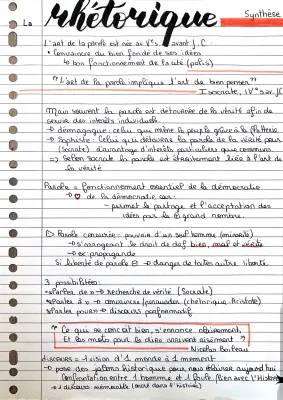 La rhétorique
Synthèse
L'art de la parole est née au Vᵉ s. avant J.C.
• Convaincre du bien fondé de ses idées
↳ bon fonctionnement de la cité (polis)
"L'art de la parole implique l'art de bien penser"
Isocrate, IVᵉ s av. JC
Mais souvent la parole est détournée de la vérité afin de
servir des intérêts individuels.
→ démagogue : celui qui mène le peuple grâce à la flatterie
→ Sophiste : Celui qui détourne la parole de la vérité pour
(Socrate) d'avantage d'intérêts particuliers que communs.
=> Selon Socrate la parole est étroitement liée à l'art de
la vérité
Parole = fonctionnement essentiel de la démocratie
→ ♡ de la démocratie car :
- permet le partage et l'acceptation des
idées par le grand nombre.
▷ Parole censurée = pouvoir d'un seul homme (minorité)
→ s'arrogeant le droit de def bien, mal et vérité
→ ex : propagande
Si liberté de parole ⊖ → danger de toutes autre liberté.
3 possibilités :
• Parler de → Recherche de vérité (Socrate)
• Parler à → convaincre/persuader (rhétorique, Aristote)
• Parler pour → discours performatif
"Ce que se conçoit bien, s'énonce clairement,
Et les mots pour le dire arrivent aisément"
Nicolas Boileau
discours = 1 vision d'1 monde à 1 moment
→ pose des jalons historique pour nous éclairer aujourd'hui
(confrontation entre 1 homme et 1 foule (lien avec l'Histoire
→ 1 discours mémorable (ancré dans l'histoire)